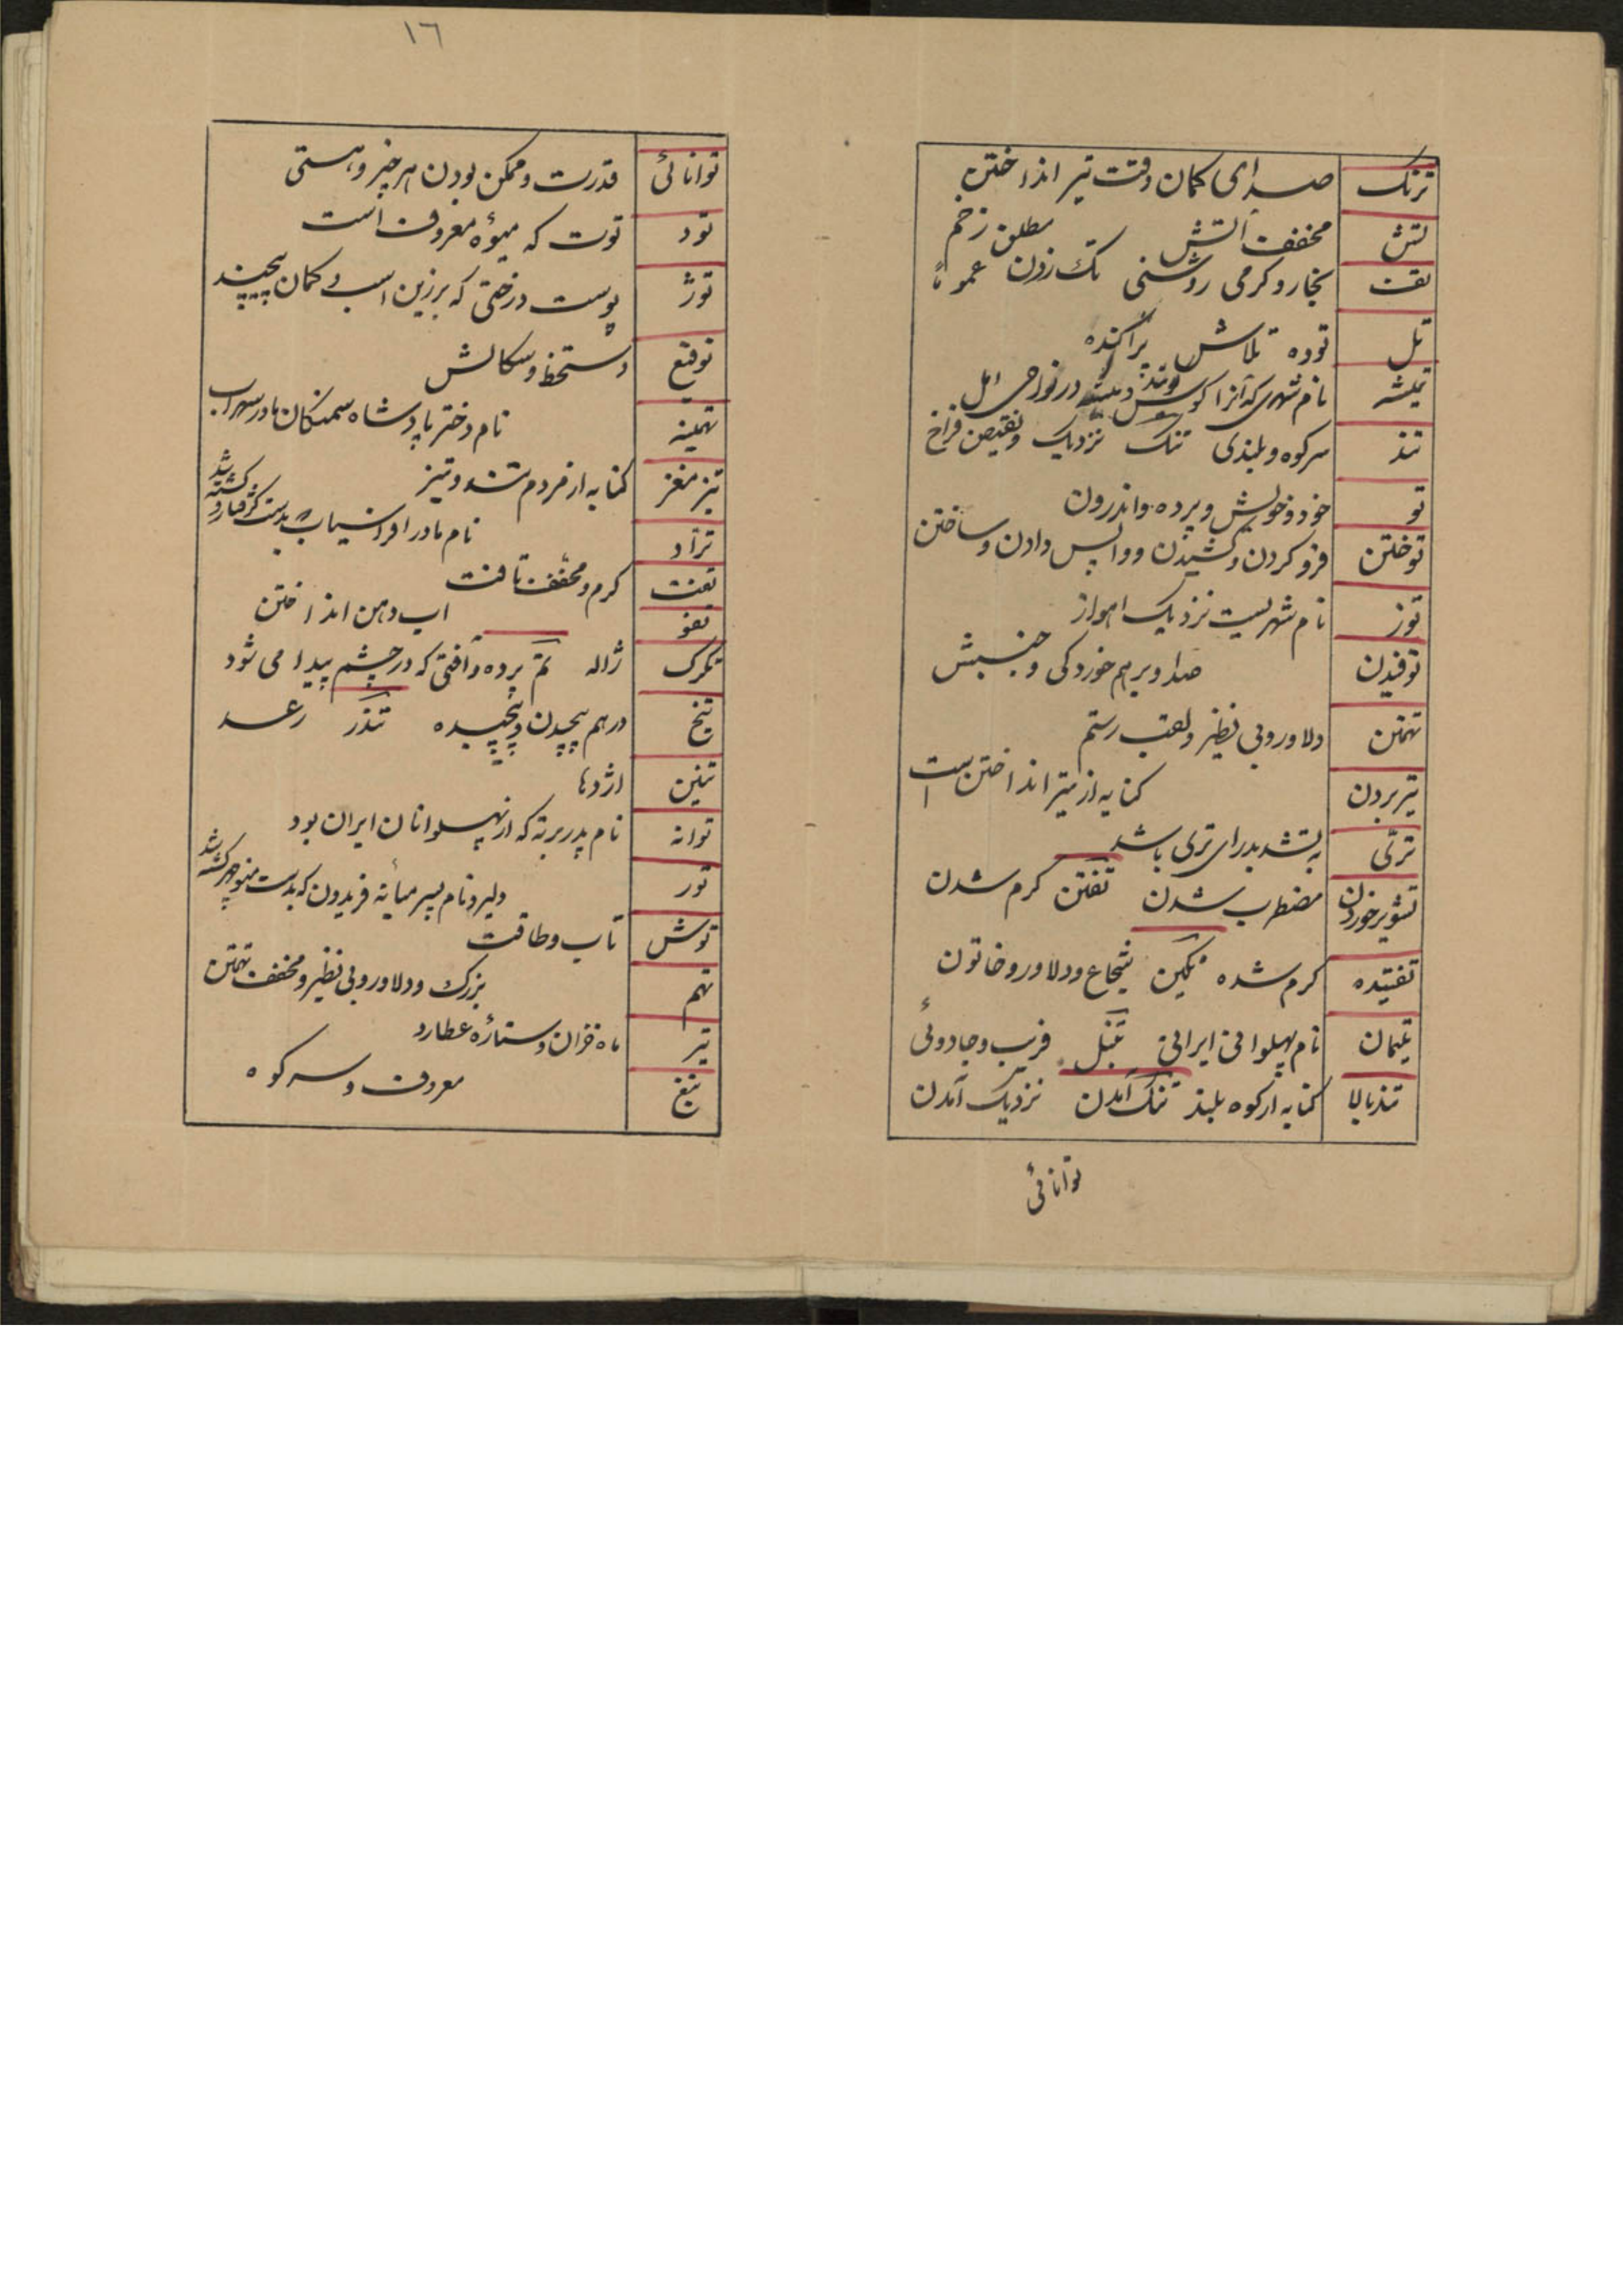 ترنک صدای کمان وقت تیر انداختن
تش مخفف آتش مطلق زخم
تفت بخار و کرمی روشنی تک زدن عموماً
تل توده تلاش پراکنده
تمیشه نام شهری که آنرا کوس و تمیشه در نواحی امل
تند سرکوه و بلندی تنک نزدیک و نقیض فراخ
تو خود و خویش و پرده و اندرون
توختن فرو کردن و کشیدن و واپس دادن و ساختن
توز نام شهریست نزدیک اهواز
توفیدن صدا و برهم خوردکی و جنبش
تهمتن دلاور و بی نظیر و لقب رستم
تیر بردن کنایه از تیر انداختن است
ترّی به تشدید رای تری باشد
تشویر خوردن مضطرب شدن تفتن کرم شدن
تفتیده کرم شده تکین شجاع و دلاور و خاتون
تلیمان نام پهلوانی ایرانی تنبل فریب و جادوئی
تند بالا کنایه از کوه بلند تنک آمدن نزدیک آمدن
توانائی
١٦
توانائی قدرت و ممکن بودن هر چیز و هستی
تود توت که میوهٔ معروف است
توژ پوست درختی که بر زین اسب و کمان پیچیند
توقیع دستخط و سکالش
تهمینه نام دختر پادشاه سمنکان مادر سهراب
تیز مغز کنایه از مردم تند و تیز
تراد نام مادر افراسیاب بدست کشته شد
تفت کرم و مخفف تافت
تفو اب دهن انداختن
تکرک ژاله تم پرده و آفتی که در چشم پیدا می شود
تنج درهم پیچیدن و پیچیده تندر رعد
تنین اژدها
توانه نام پدر برته که از پهلوانان ایران بود
تور دلیر و نام پسر میانه فریدون که بدست منوچهر کشته شد
توش تاب و طاقت
تهم بزرک و دلاور و بی نظیر و مخفف تهمتن
تیر ماه خزان و ستارهٔ عطارد
تیغ معروف و سر کوه